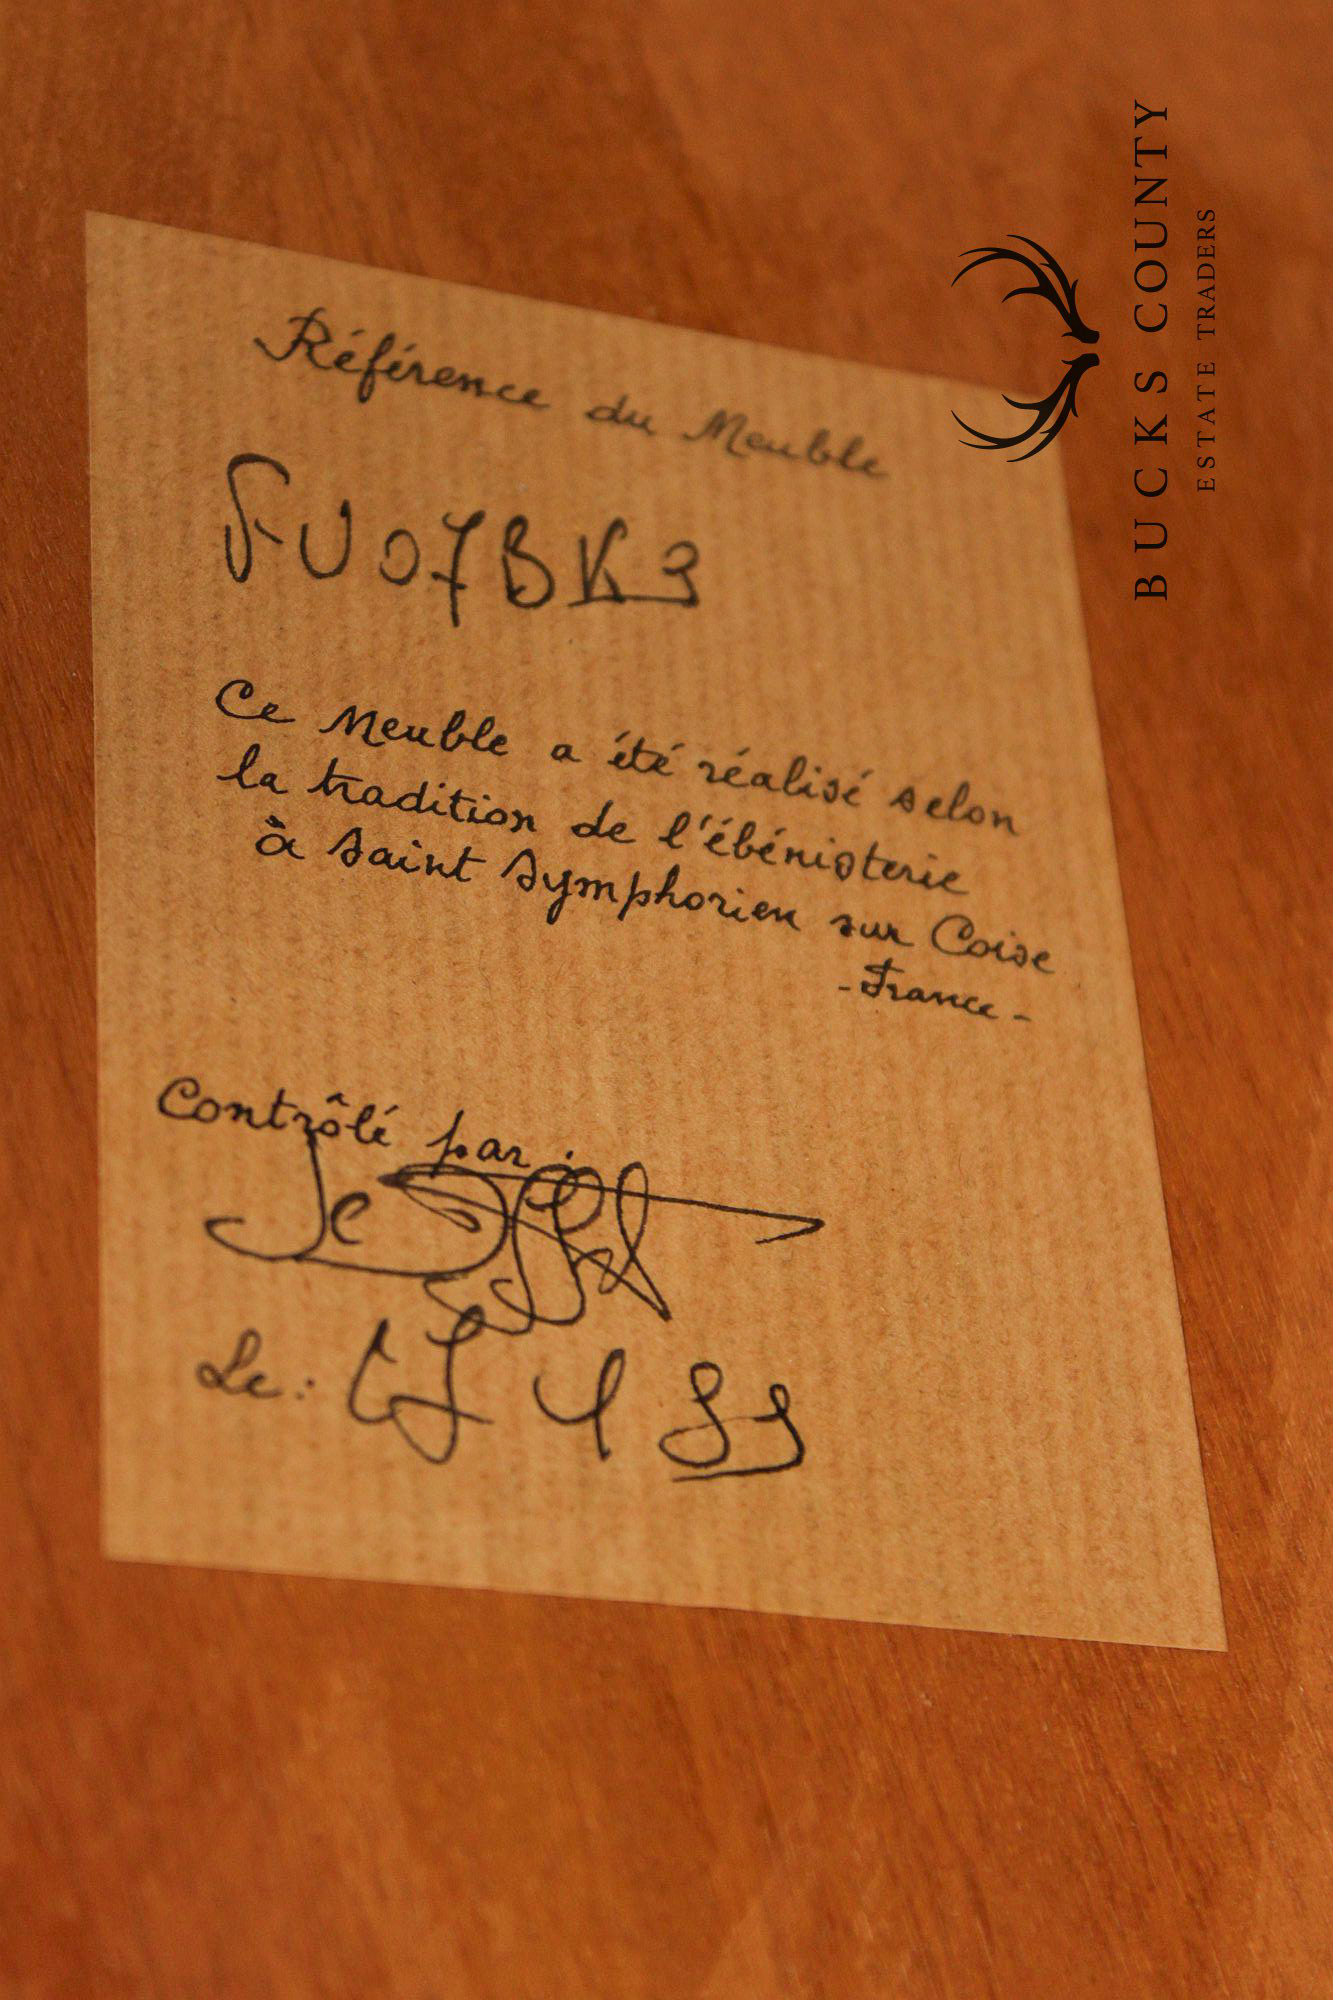 Référence du Meuble
FU07BK3
Ce Meuble a été réalisé selon
la tradition de l'ébénisterie
à Saint Symphorien sur Coise
- France -
Contrôlé par :
Le :
BUCKS COUNTY
ESTATE TRADERS